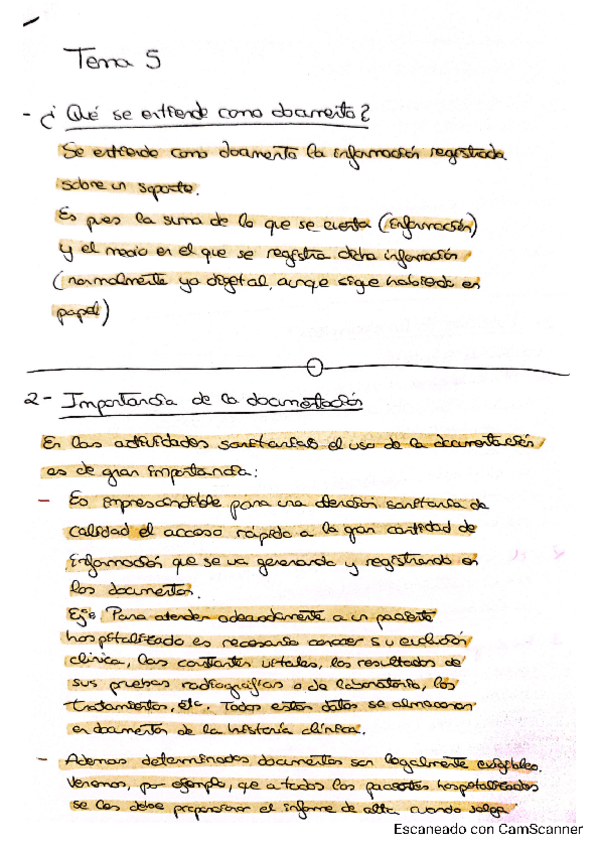 Tema 5
- ¿Qué se entiende como documento?
Se entiende como documento la información registrada
sobre un soporte.
Es pues la suma de lo que se cuenta (información)
y el medio en el que se registra dicha información
(normalmente ya digital, aunque sigue habiendo en
papel)
2- Importancia de la documentación
En las actividades sanitarias el uso de la documentación
es de gran importancia:
- Es imprescindible para una atención sanitaria de
calidad el acceso rápido a la gran cantidad de
información que se va generando y registrando en
los documentos.
Eje: Para atender adecuadamente a un paciente
hospitalizado es necesario conocer su evolución
clínica, las constantes vitales, los resultados de
sus pruebas radiográficas o de laboratorio, los
tratamientos, etc. Todos estos datos se almacenan
en documentos de la historia clínica.
- Ademas determinados documentos son legalmente exigibles.
Veremos, por ejemplo, que a todos los pacientes hospitalizados
se les debe proporcionar el informe de alta cuando salga
Escaneado con CamScanner